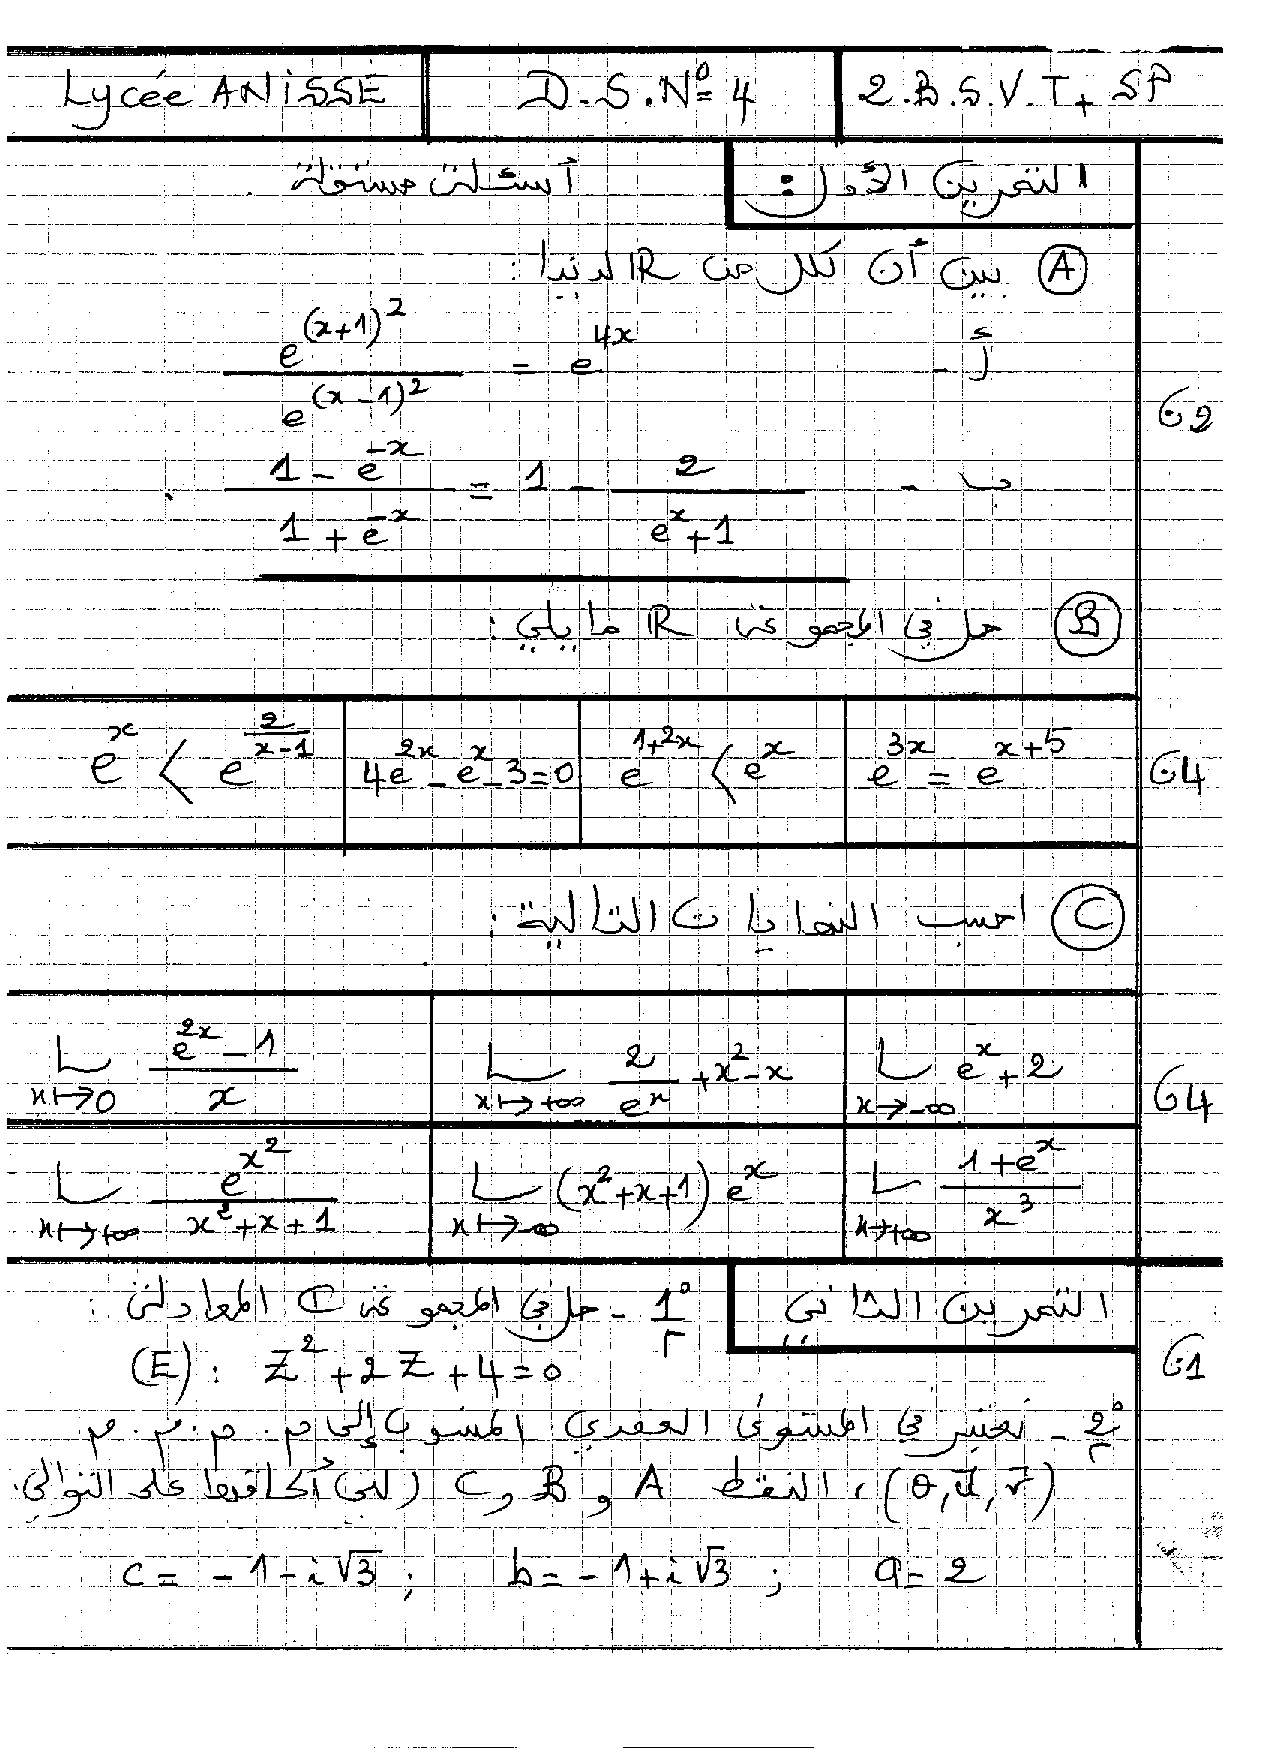 Lycée ANISSE | D.S.N°4 | 2.B.S.V.T + SP
التمرين الأول: أسئلة مستقلة.
Ⓐ بين أن لكل x من IR لدينا:
أ - e^{(x+1)^2} / e^{(x-1)^2} = e^{4x}
ن2
ب - (1 - e^{-x}) / (1 + e^{-x}) = 1 - 2 / (e^x + 1)
Ⓑ حل في المجموعة IR ما يلي:
e^{3x} = e^{x+5} | e^{1+2x} < e^x | 4e^{2x} - e^x - 3 = 0 | e^x < e^{2/(x-1)}
ن4
Ⓒ احسب النهايات التالية:
L_{x→-∞} e^x + 2 | L_{x↦+∞} 2/e^x + x^2 - x | L_{x↦0} (e^{2x} - 1)/x
ن4
L_{x↦+∞} (1 + e^x)/x^3 | L_{x↦-∞} (x^2 + x + 1) e^x | L_{x↦+∞} e^{x^2}/(x^2 + x + 1)
التمرين الثاني 1° - حل في المجموعة C المعادلة:
(E): Z^2 + 2Z + 4 = 0
ن1
2° - نعتبر في المستوى العقدي المنسوب إلى م.م.م.م
(O, u, v)، النقط A و B و C التي ألحاقها على التوالي.
a = 2 ; b = -1 + i√3 ; c = -1 - i√3